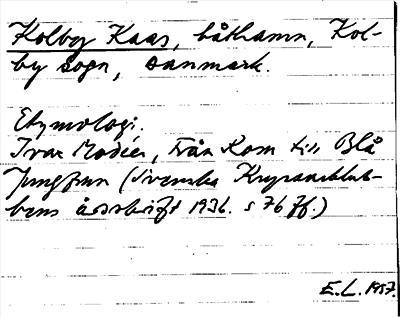 Kolby Kaas, båthamn, Kol-
by sogn, Danmark.
Etymologi.
Ivar Modéer, Från Kom till Blå
Jungfrun (Svenska Kryssareklub-
bens årsskrift 1936. s 76 ff.)
E.L. 1957.